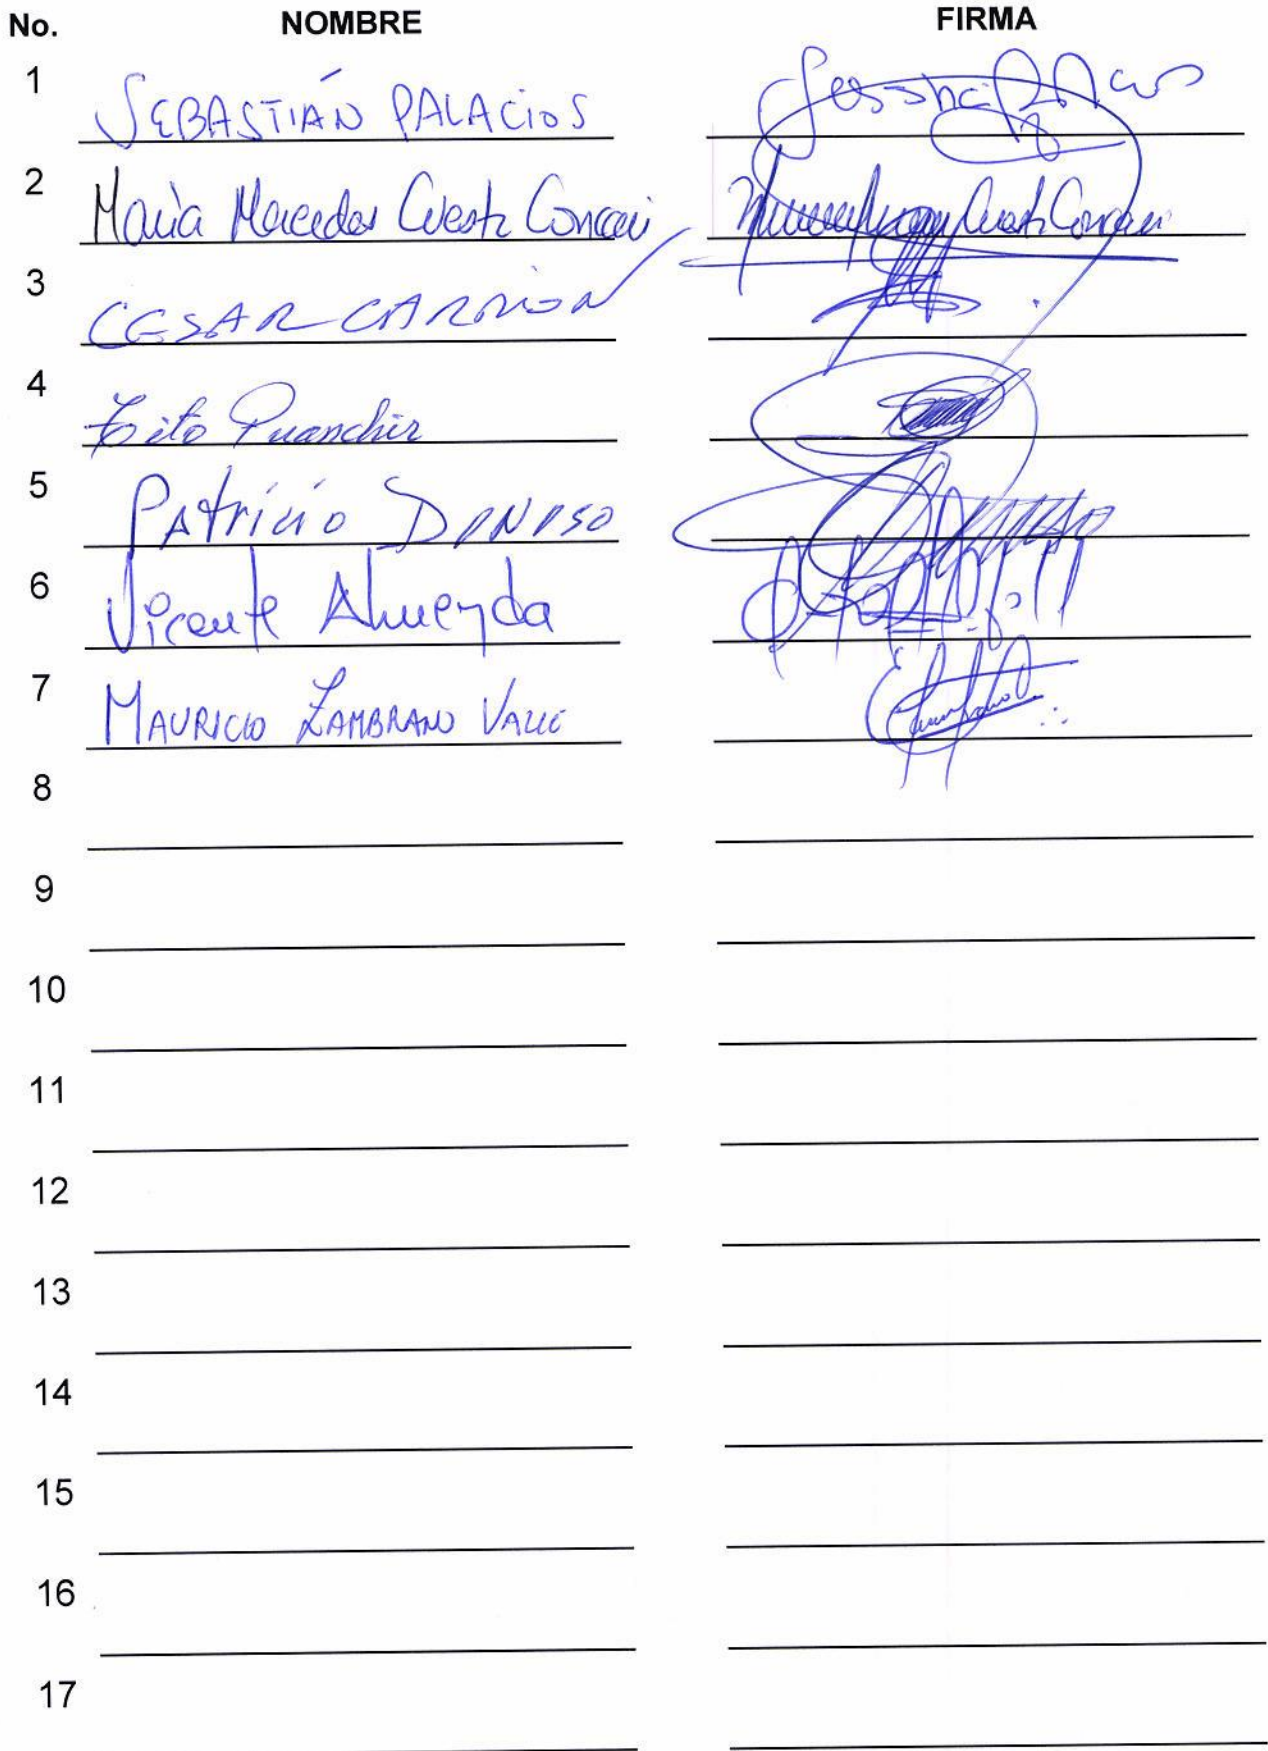 No. NOMBRE FIRMA
1 SEBASTIÁN PALACIOS
2 María Mercedes Cuesta Concari
3 CESAR CARRION
4 Tito Puanchir
5 Patricio DONOSO
6 Vicente Almeyda
7 MAURICIO ZAMBRANO VALLE
8
9
10
11
12
13
14
15
16
17